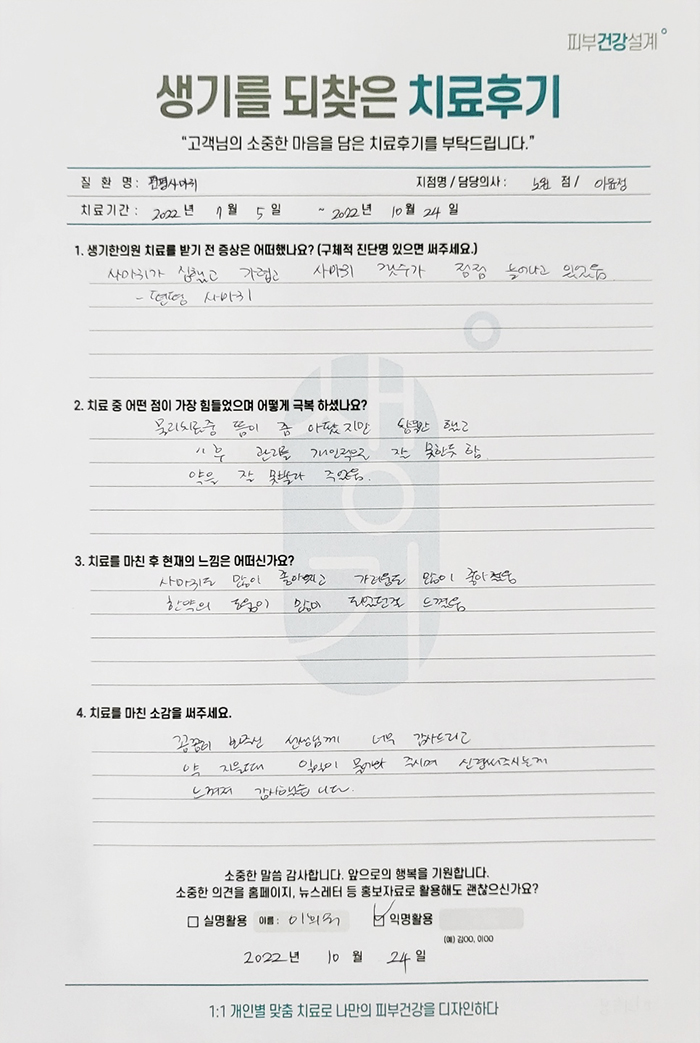 피부건강설계
생기를 되찾은 치료후기
"고객님의 소중한 마음을 담은 치료후기를 부탁드립니다."
질 환 명 : 편평사마귀 지점명 / 담당의사 : 노원 점 / 이윤정
치료기간 : 2022 년 7 월 5 일 ~ 2022 년 10 월 24 일
1. 생기한의원 치료를 받기 전 증상은 어떠했나요? (구체적 진단명 있으면 써주세요.)
사마귀가 심했고 가렵고 사마귀 갯수가 점점 늘어나고 있었음
- 편평 사마귀
2. 치료 중 어떤 점이 가장 힘들었으며 어떻게 극복 하셨나요?
물리치료중 뜸이 좀 아팠지만 참을만 했고
이후 관리를 개인적으로 잘 못한듯 함.
약을 잘 못발라 주었음.
3. 치료를 마친 후 현재의 느낌은 어떠신가요?
사마귀도 많이 좋아졌고 가려움도 많이 좋아졌음
한약의 도움이 많이 되었던걸 느꼈음
4. 치료를 마친 소감을 써주세요.
꼼꼼히 봐주신 선생님께 너무 감사드리고
약 지을때 일일이 물어봐 주시며 신경써주시는게
느껴져 감사했습니다.
소중한 말씀 감사합니다. 앞으로의 행복을 기원합니다.
소중한 의견을 홈페이지, 뉴스레터 등 홍보자료로 활용해도 괜찮으신가요?
실명활용 이름 : 익명활용
(예) 김OO, 이OO
2022 년 10 월 24 일
1:1 개인별 맞춤 치료로 나만의 피부건강을 디자인하다